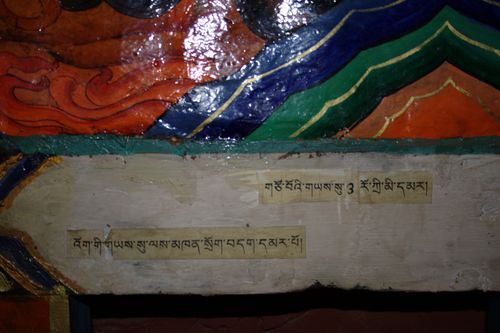 གཙོ་བོའི་གཡས་སུ་ 3 རོ་ཀྲི་མི་དམར།
འོག་གི་གཡས་སུ་ལས་མཁན་སྲོག་བདག་དམར་པོ།